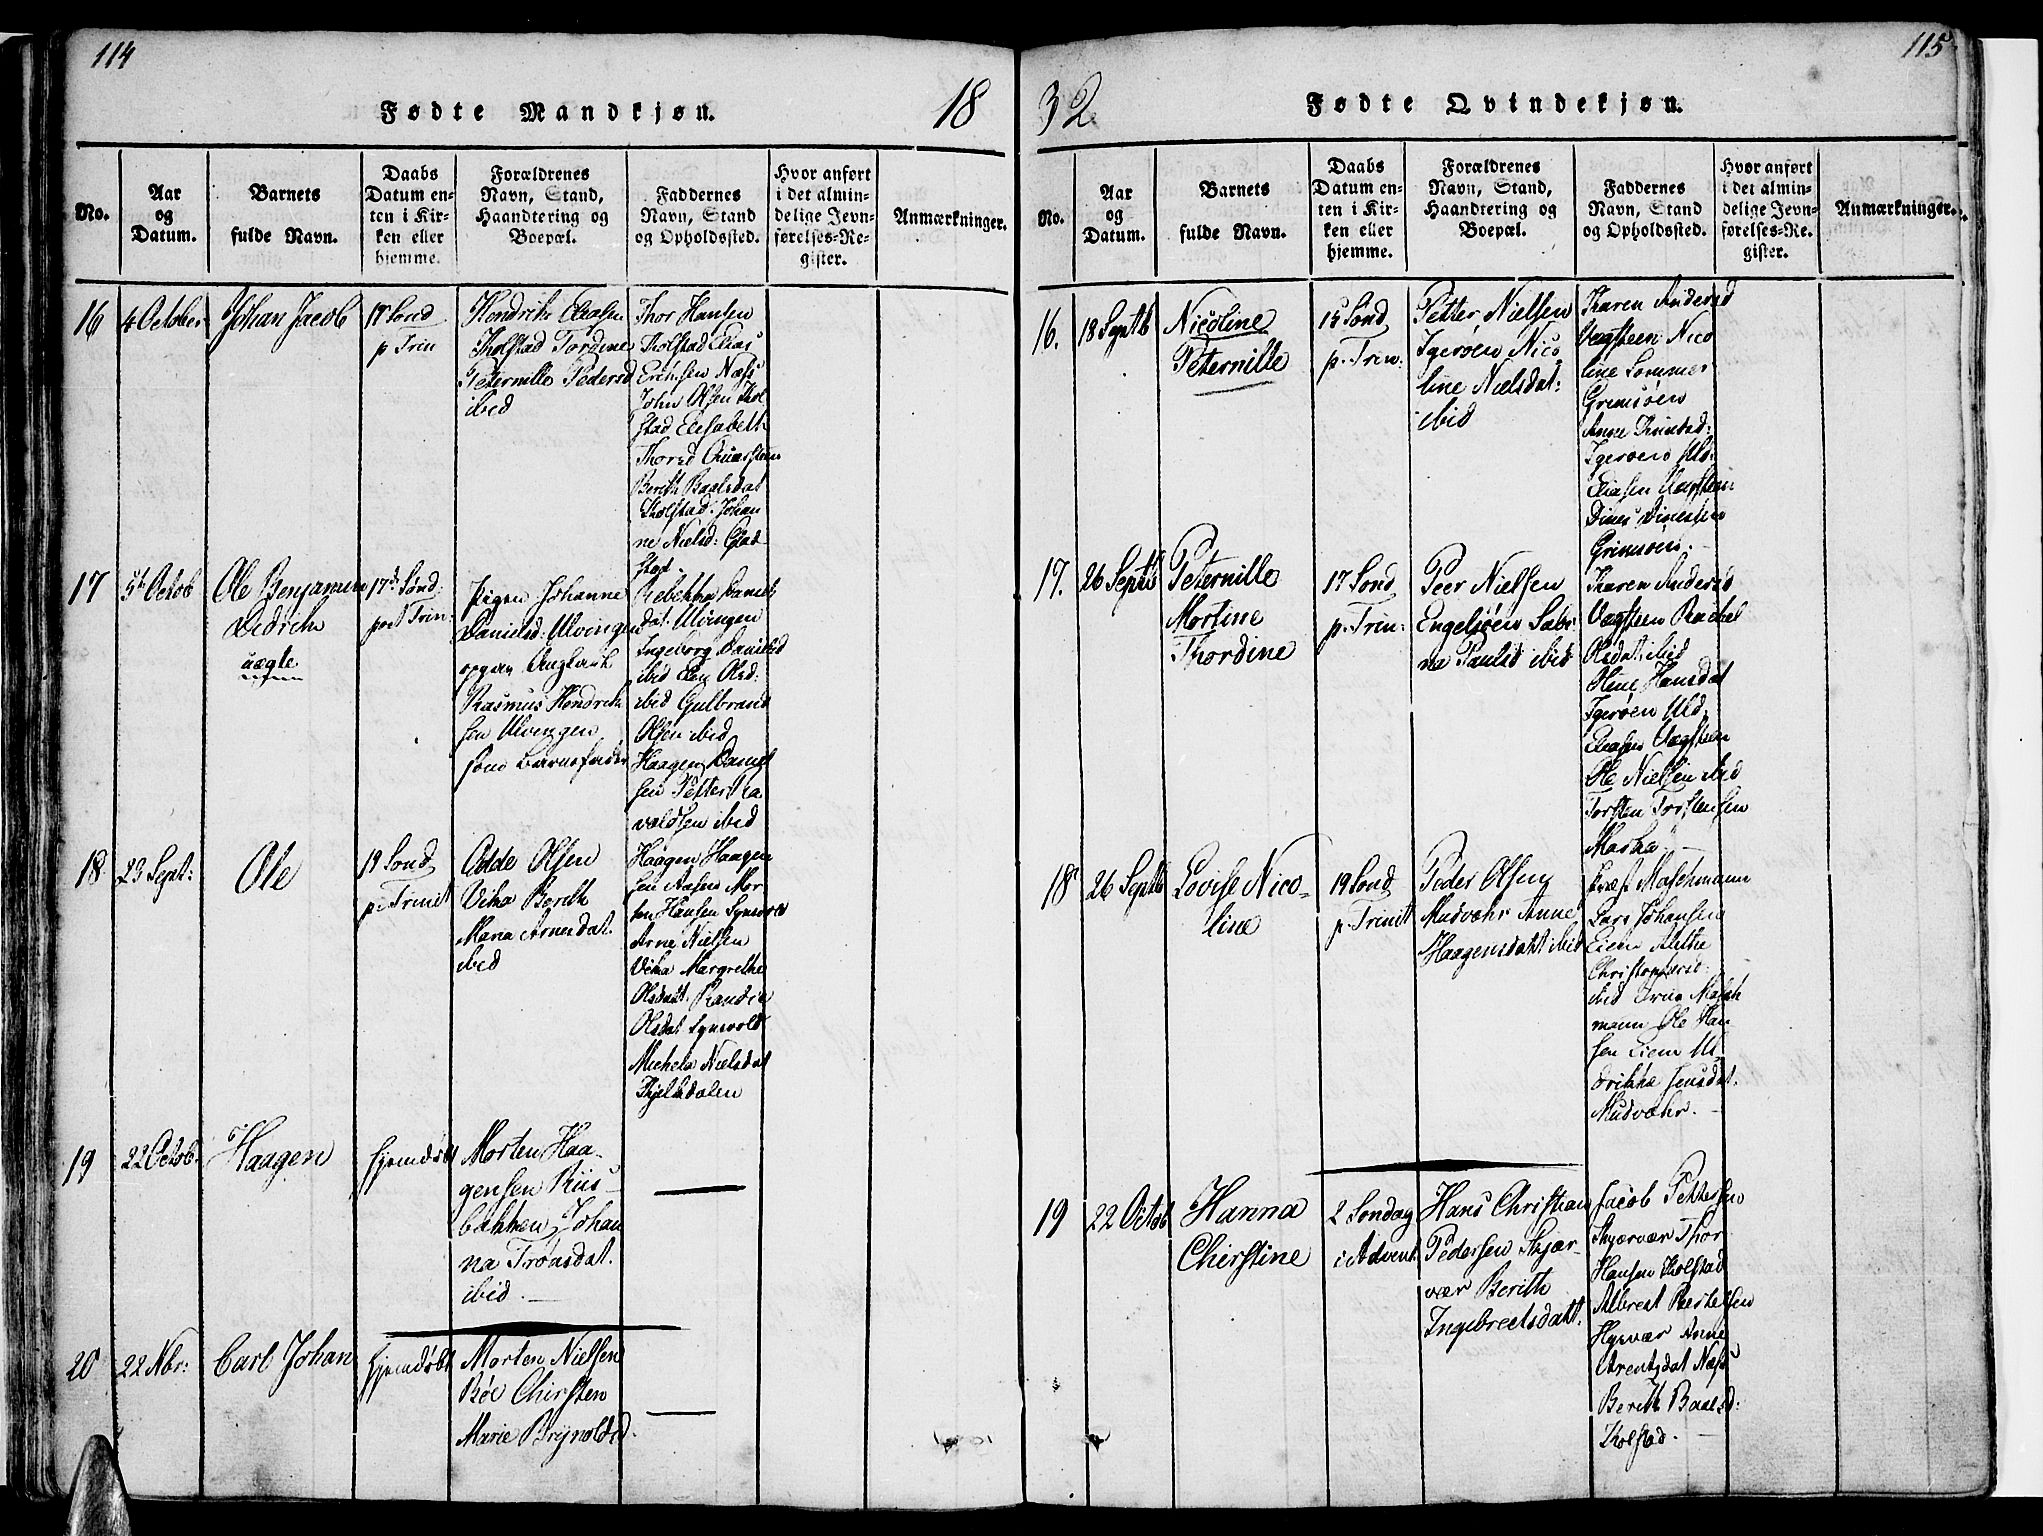 114
18
Fødte Mandkjøn.
No.
Aar
og
Datum.
Barnets
fulde Navn.
Daabs
Datum en-
ten i Kir-
ken eller
hjemme.
Forældrenes
Navn, Stand,
Haandtering og
Boepæl.
Faddernes
Navn, Stand
og Opholdssted.
Hvor anført
i det almin-
delige Jevn-
førelses-Re-
gister.
Anmærkninger.
16
4 October
Johan Jacob
17 Sønd
p Trin
Hendrik Eliasen
Tholstad Tordine
Peternille Pedersd
ibid
Thor Hansen
Tholstad Elias
Erichsen Næss
John Olsen Thol
stad Elisabeth
Thorsd
Berith Baalsdat
Tholstad Johan
ne Nielsd:
stad
17
5te Octob
Ole Benjamin
Dedrich
uægte
17de Sønd
post Trin:
Pigen Johanne
Danielsd: Ulvingen
opgav Ungkarl
Rasmus Hendrich
sen Ulvingen
som Barnefader
Rebekka Daniels
dat: Ulvingen
Ingeborg Danielsd
ibid Elen Olsd:
ibid Gulbrand
Olsen ibid
Haagen Daniel
sen Petter Ra
valdsen ibid
18
23 Sept:
Ole
19 Sond
p. Trinit
Odde Olsen
Vika Berith
Maria Arnesdat.
ibid
Haagen Haagen
sen Aasen Mor
ten Hansen Synsvold
Arne Nielsen
Vika Margrethe
Olsdat. Randie
Olsdat Synsvold
Michela Nielsdat
Thjelsdalen
19
22 Octob.
Haagen
hjemdøbt
Morten Haa-
gensen Riis-
bakken Johan
na Trønsdat.
ibid.
20
22 Nbr:
Carl Johan
hjemdøbt
Morten Nielsen
Bøe Chirsten
Marie Brynoldsd.
115
32
Fødte Qvindekjøn.
No.
Aar
og
Datum.
Barnets
fulde Navn.
Daabs
Datum en-
ten i Kir-
ken eller
hjemme.
Forældrenes
Navn, Stand,
Haandtering og
Boepæl.
Faddernes
Navn, Stand
og Opholdssted.
Hvor anført
i det almin-
delige Jevn-
førelses-Re-
gister.
Anmærkninger.
16.
18 Septb
Nicoline
Peternille
15 Sond
p. Trin:
Petter Nielsen
Igerøen Nico
line Nielsdat:
ibid
Karen Andersd
Vægsteen Nico
line Sommer
Grimsøen
Anne
Igerøen Uld:
Eliasen Vægsteen
Dines Dinessen
Grimsøen.
17.
26 Septb
Peternille
Mortine
Thordine
17 Sond
p. Trin:
Peer Nielsen
Engelsøen Sabi
na Paulsd ibid
Karen Andersd
Vægsteen Rachel
Olsdat: ibid
Oline Hansdat
Igerøen Uld:
Eliasen Vægsteen
Ole Nielsen ibid
Torsten Torstensen
Marka.
18
26 Septb
Lovise Nico-
line
19 Sond
p. Trinit
Peder Olsen
Mudvahr Anne
Haagensdatt ibid
Præst Maschmann
Lars Johansen
Eiem Alethe
Christophersd.
ibid Masch
mann Ole Han
sen Eiem Ul
drikka Jensdat.
Mudvahr.
19
22 Octob
Hanna
Chirstine
2 Søndag
i Advent.
Hans Christian
Pedersen Skjær-
vær Berith
Ingebretsdatt.
Jacob Pettersen
Skjærvær Thor
Hansen Tholstad
Albregt Pedersen
Hysvær Anne
Arentsdat Næss
Berith Baalsd:
Tholstad.